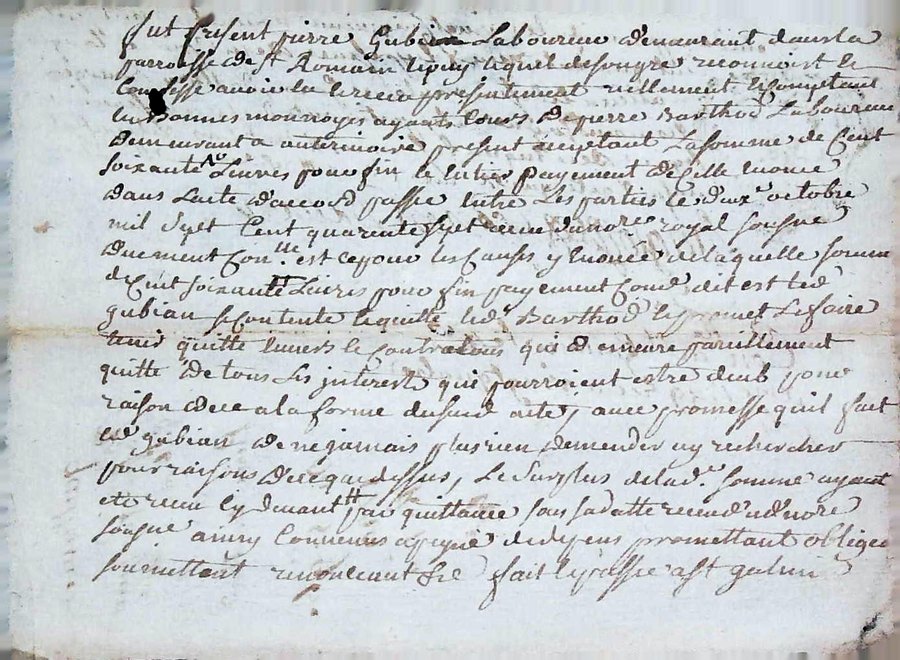 fut present pierre Gubian Laboureur demeurant dans la
parroisse de st Romain lequel de son gre reconnoist et
Confesse avoir eu et receu presentement reellement et Comptant
en bonnes monnoyes ayants Cours de pierre Barthod Laboureur
demeurant a present acceptant La somme de Cent
soixante Livres pour fin et entier payement de Celle enoncé
dans l'acte d'accord passé entre Les parties le octobre
mil sept Cent quarente sept receu du nore royal sousne
duement Con.lle est ce pour les Causes y enoncé de laquelle somme
de Cent soixante Livres pour fin payement Come dit est led
gubian se Contente et quitte led Barthod et promet Le faire
tenir quitte envers et Contre tous qui demeure pareillement
quitte de tous Les interest qui pourroient estre deub pour
raison de ce a la forme du susd acte, avec promesse qu'il fait
led gubian de ne jamais plus rien demender ny rechercher
pour raisons de ce que dessus, Le Surplus de lad. somme ayant
eté receu Cy devant par quittance sous sa datte receue dud nore
sousne ainsy Convenus a peyne de depens promettant obligeant
soumettant renonceant &c fait et passé a st